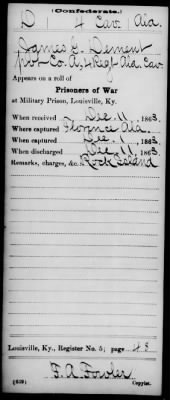 (Confederate.)
D 4 Cav. Ala.
James C. Dement
pvt Co. A, 4 Regt Ala. Cav.
Appears on a roll of
Prisoners of War
at Military Prison, Louisville, Ky.
When received Dec. 11, 1863.
Where captured Florence Ala.
When captured Dec. , 1863.
When discharged Dec. 11, 1863.
Remarks, charges, &c. Rock Island
Louisville, Ky., Register No. 5; page 48
F. A. Fowler
(639) Copyist.